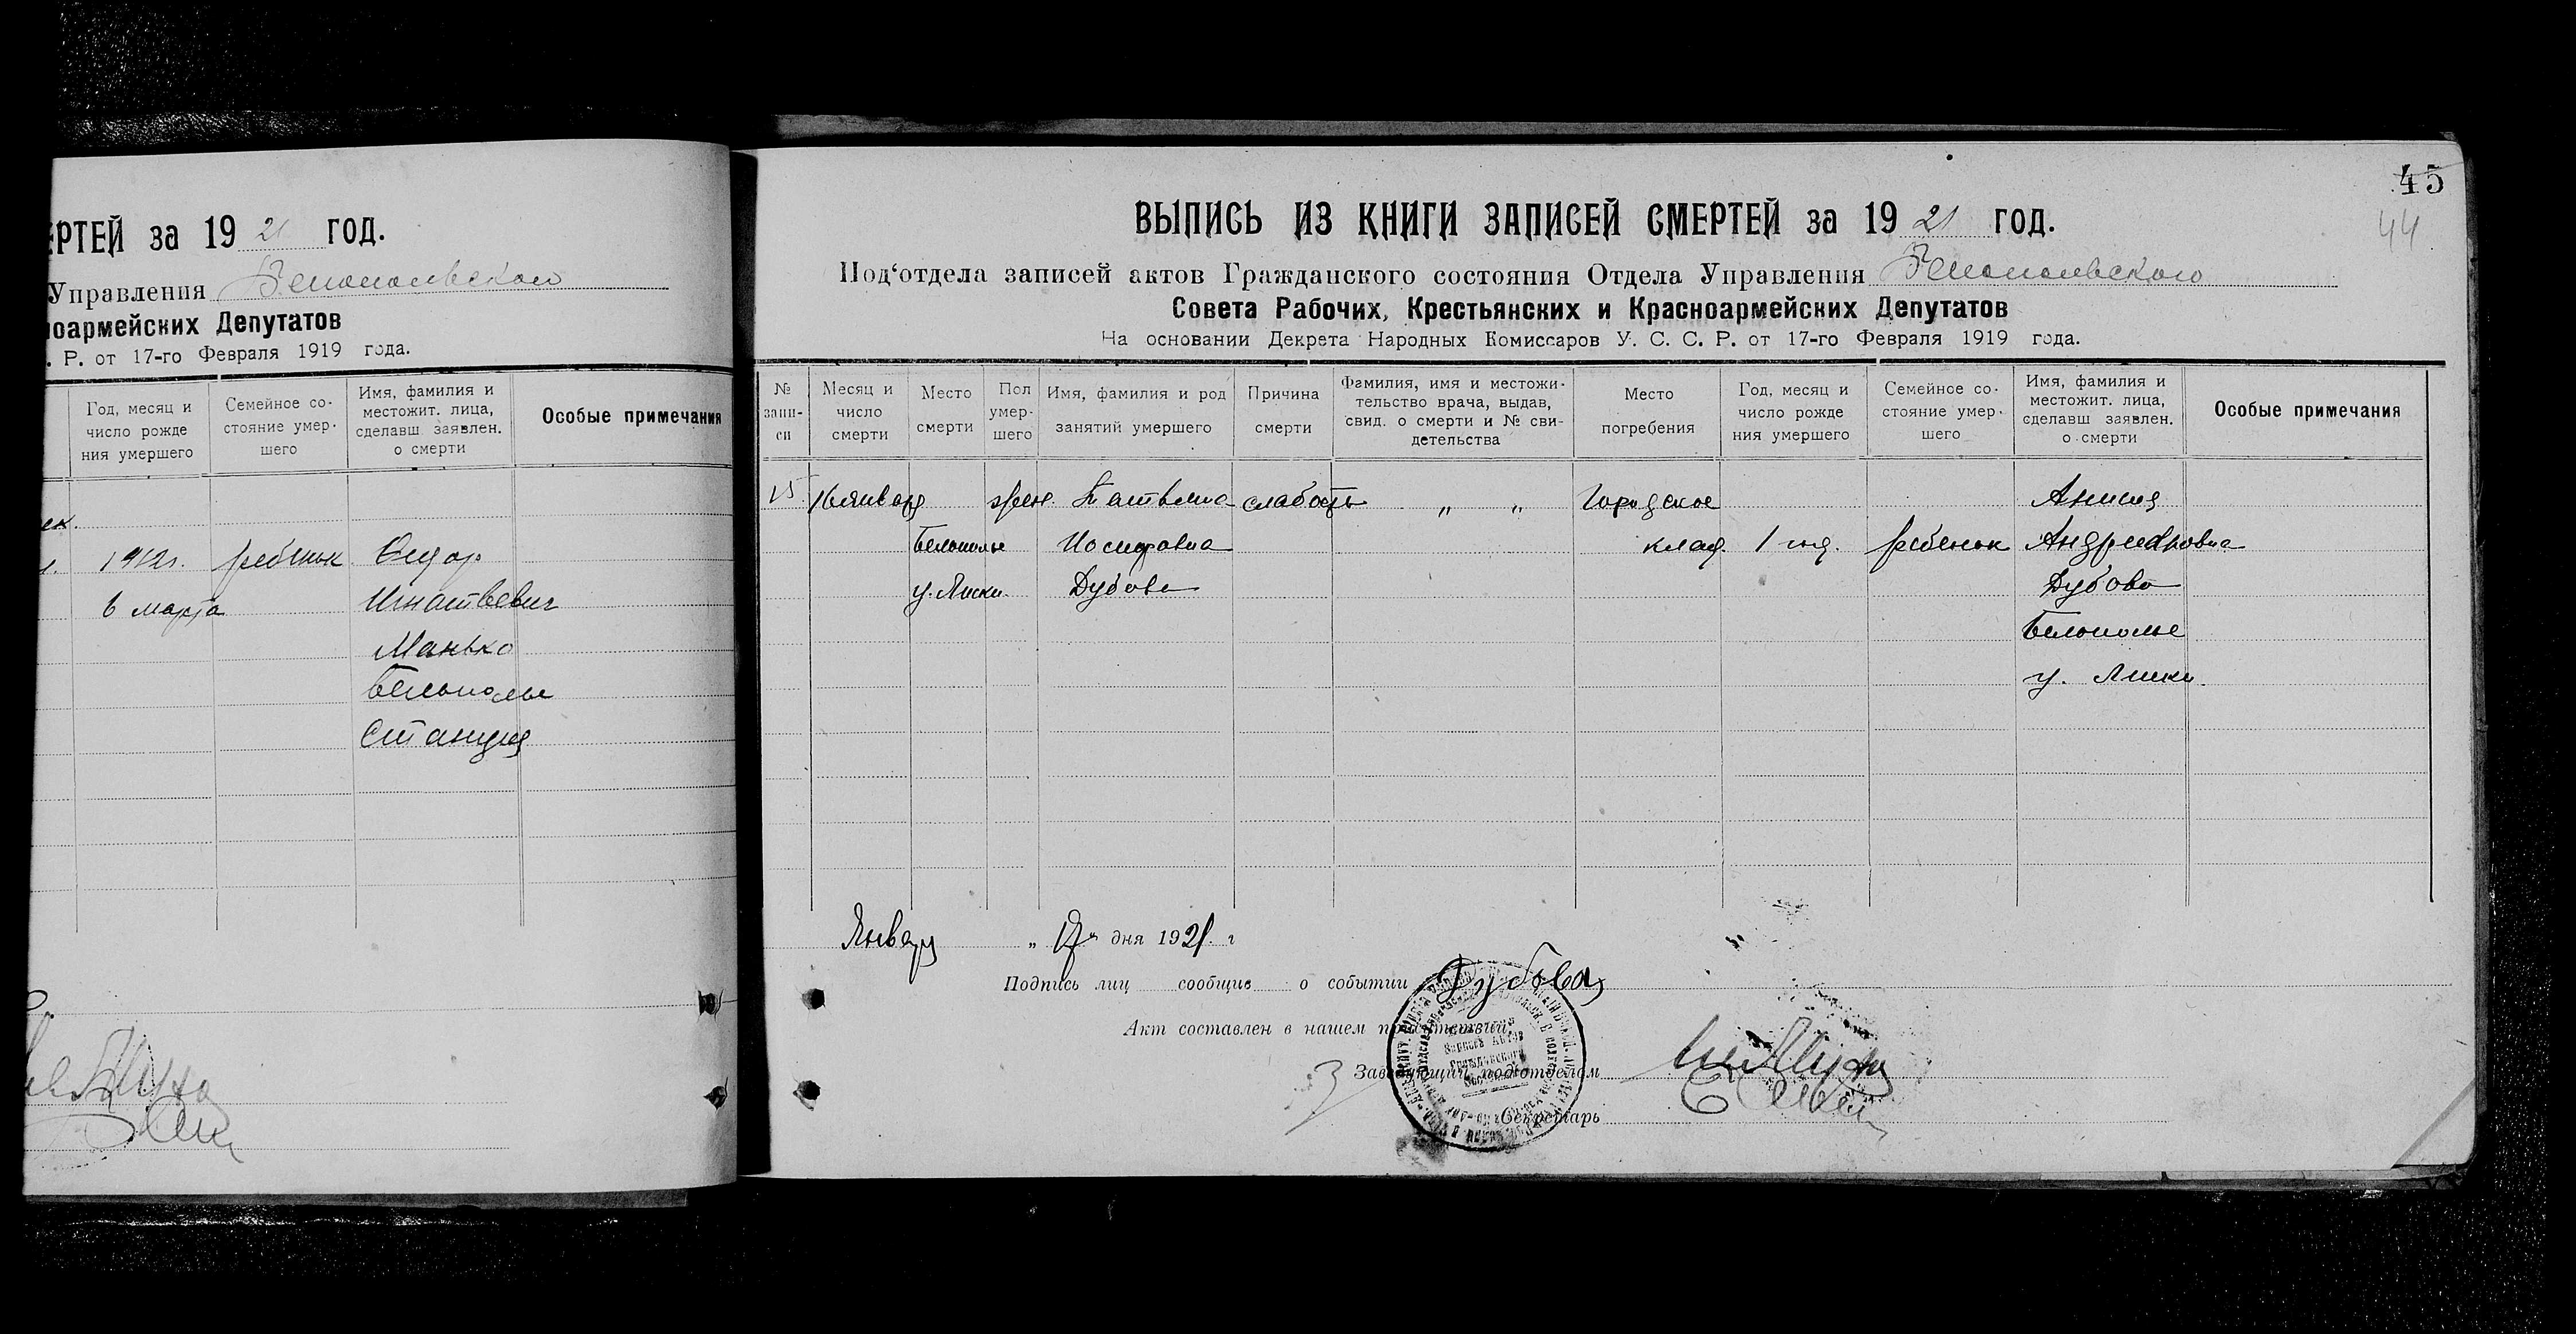 ЕРТЕЙ за 1921 ГОД.
Управления Белопольского
ноармейских Депутатов
. Р. от 17-го Февраля 1919 года.
Год, месяц и
число рожде
ния умершего
Семейное со-
стояние умер-
шего
Имя, фамилия и
местожит. лица,
сделавш. заявлен.
о смерти
Особые примечания
1912г. ребенок
6 марта Игнатьевич
Манько
Белополье
Станция
45
44
ВЫПИСЬ ИЗ КНИГИ ЗАПИСЕЙ СМЕРТЕЙ за 1921 ГОД.
Под‘отдела записей актов Гражданского состояния Отдела Управления Белопольского
Совета Рабочих, Крестьянских и Красноармейских Депутатов
На основании Декрета Народных Комиссаров У. С. С. Р. от 17-го Февраля 1919 года.
№
запи-
си
Месяц и
число
смерти
Место
смерти
Пол
умер-
шего
Имя, фамилия и род
занятий умершего
Причина
смерти
Фамилия, имя и местожи-
тельство врача, выдав,
свид. о смерти и № сви-
детельства
Место
погребения
Год, месяц и
число рожде
ния умершего
Семейное со-
стояние умер-
шего
Имя, фамилия и
местожит. лица,
сделавш заявлен.
о смерти
Особые примечания
15 16 января жен. Татьяна слабость „ „ Городское Анисия
Белополье Иосифовна клад. 1 год. ребенок Андреевна
Дубова Дубова
Белополье
Январь „ 17 „ дня 1921 г
Подпись лиц сообщив о событии Дубова
Акт составлен в нашем присутствии:
Заведующий подотделом
Секретарь